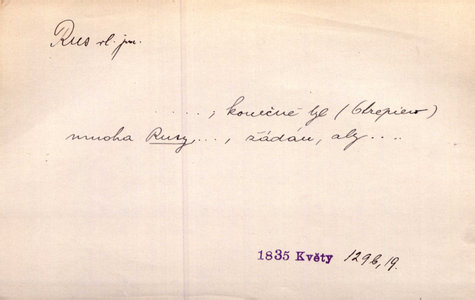 Rus vl. jm.
. . . . . , konečně byl (Otrepiew)
mnoha Rusy . . . , žádán, aby . . . .
1835 Květy 129b, 19.